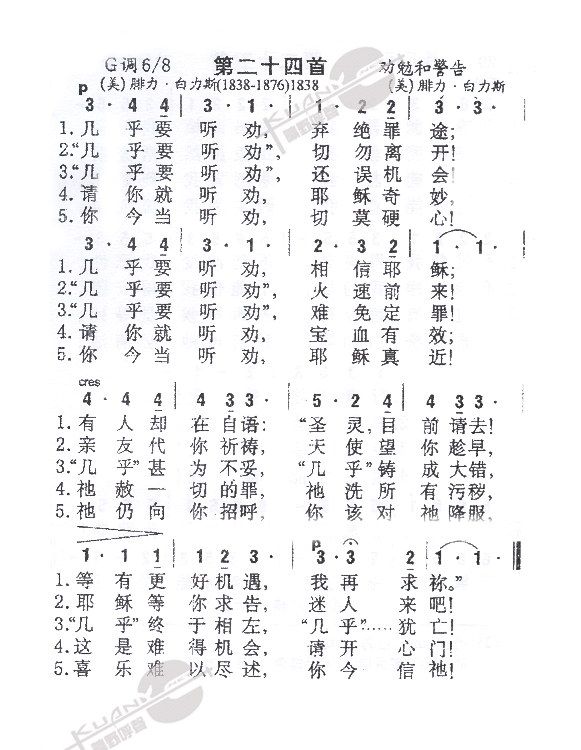 G调6/8 第二十四首 劝勉和警告
(美)腓力·白力斯(1838-1876)1838 (美)腓力·白力斯
p
3· 4 4 | 3· 1· | 1· 2 2 | 3· 3· |
1.几乎要听劝，弃绝罪途；
2.“几乎要听劝”，切勿离开！
3.“几乎要听劝”，还误机会！
4.请你就听劝，耶稣奇妙，
5.你今当听劝，切莫硬心！
3· 4 4 | 3· 1· | 2· 3 2 | 1· 1· |
1.几乎要听劝，相信耶稣；
2.“几乎要听劝”，火速前来！
3.“几乎要听劝”，难免定罪！
4.请你就听劝，宝血有效；
5.你今当听劝，耶稣真近！
cres
4· 4 4 | 4 3 3· | 5· 2 4 | 4 3 3· |
1.有人却在自语：“圣灵，目前请去！
2.亲友代你祈祷，天使望你趁早，
3.“几乎”甚为不妥，“几乎”铸成大错，
4.祂赦一切的罪，祂洗所有污秽，
5.祂仍向你招呼，你该对祂降服，
p
1· 1 1 | 1 2 3· | 3·3 2 | 1· 1·
1.等有更好机遇，我再求祢。”
2.耶稣等你求告，迷人来吧！
3.“几乎”终于相左，“几乎”……犹亡！
4.这是难得机会，请开心门！
5.喜乐难以尽述，你今信祂！